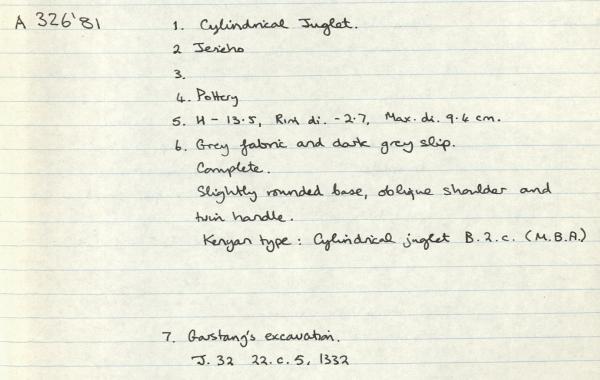 A 326'81
1. Cylindrical Juglet.
2 Jericho
3.
4. Pottery
5. H - 13.5, Rim di. - 2.7, Max. di. 9.4 cm.
6. Grey fabric and dark grey slip.
Complete.
Slightly rounded base, oblique shoulder and
twin handle.
Kenyan type : Cylindrical juglet B.2.c. (M.B.A.)
7. Garstang's excavation.
J. 32 22.c.5, 1332